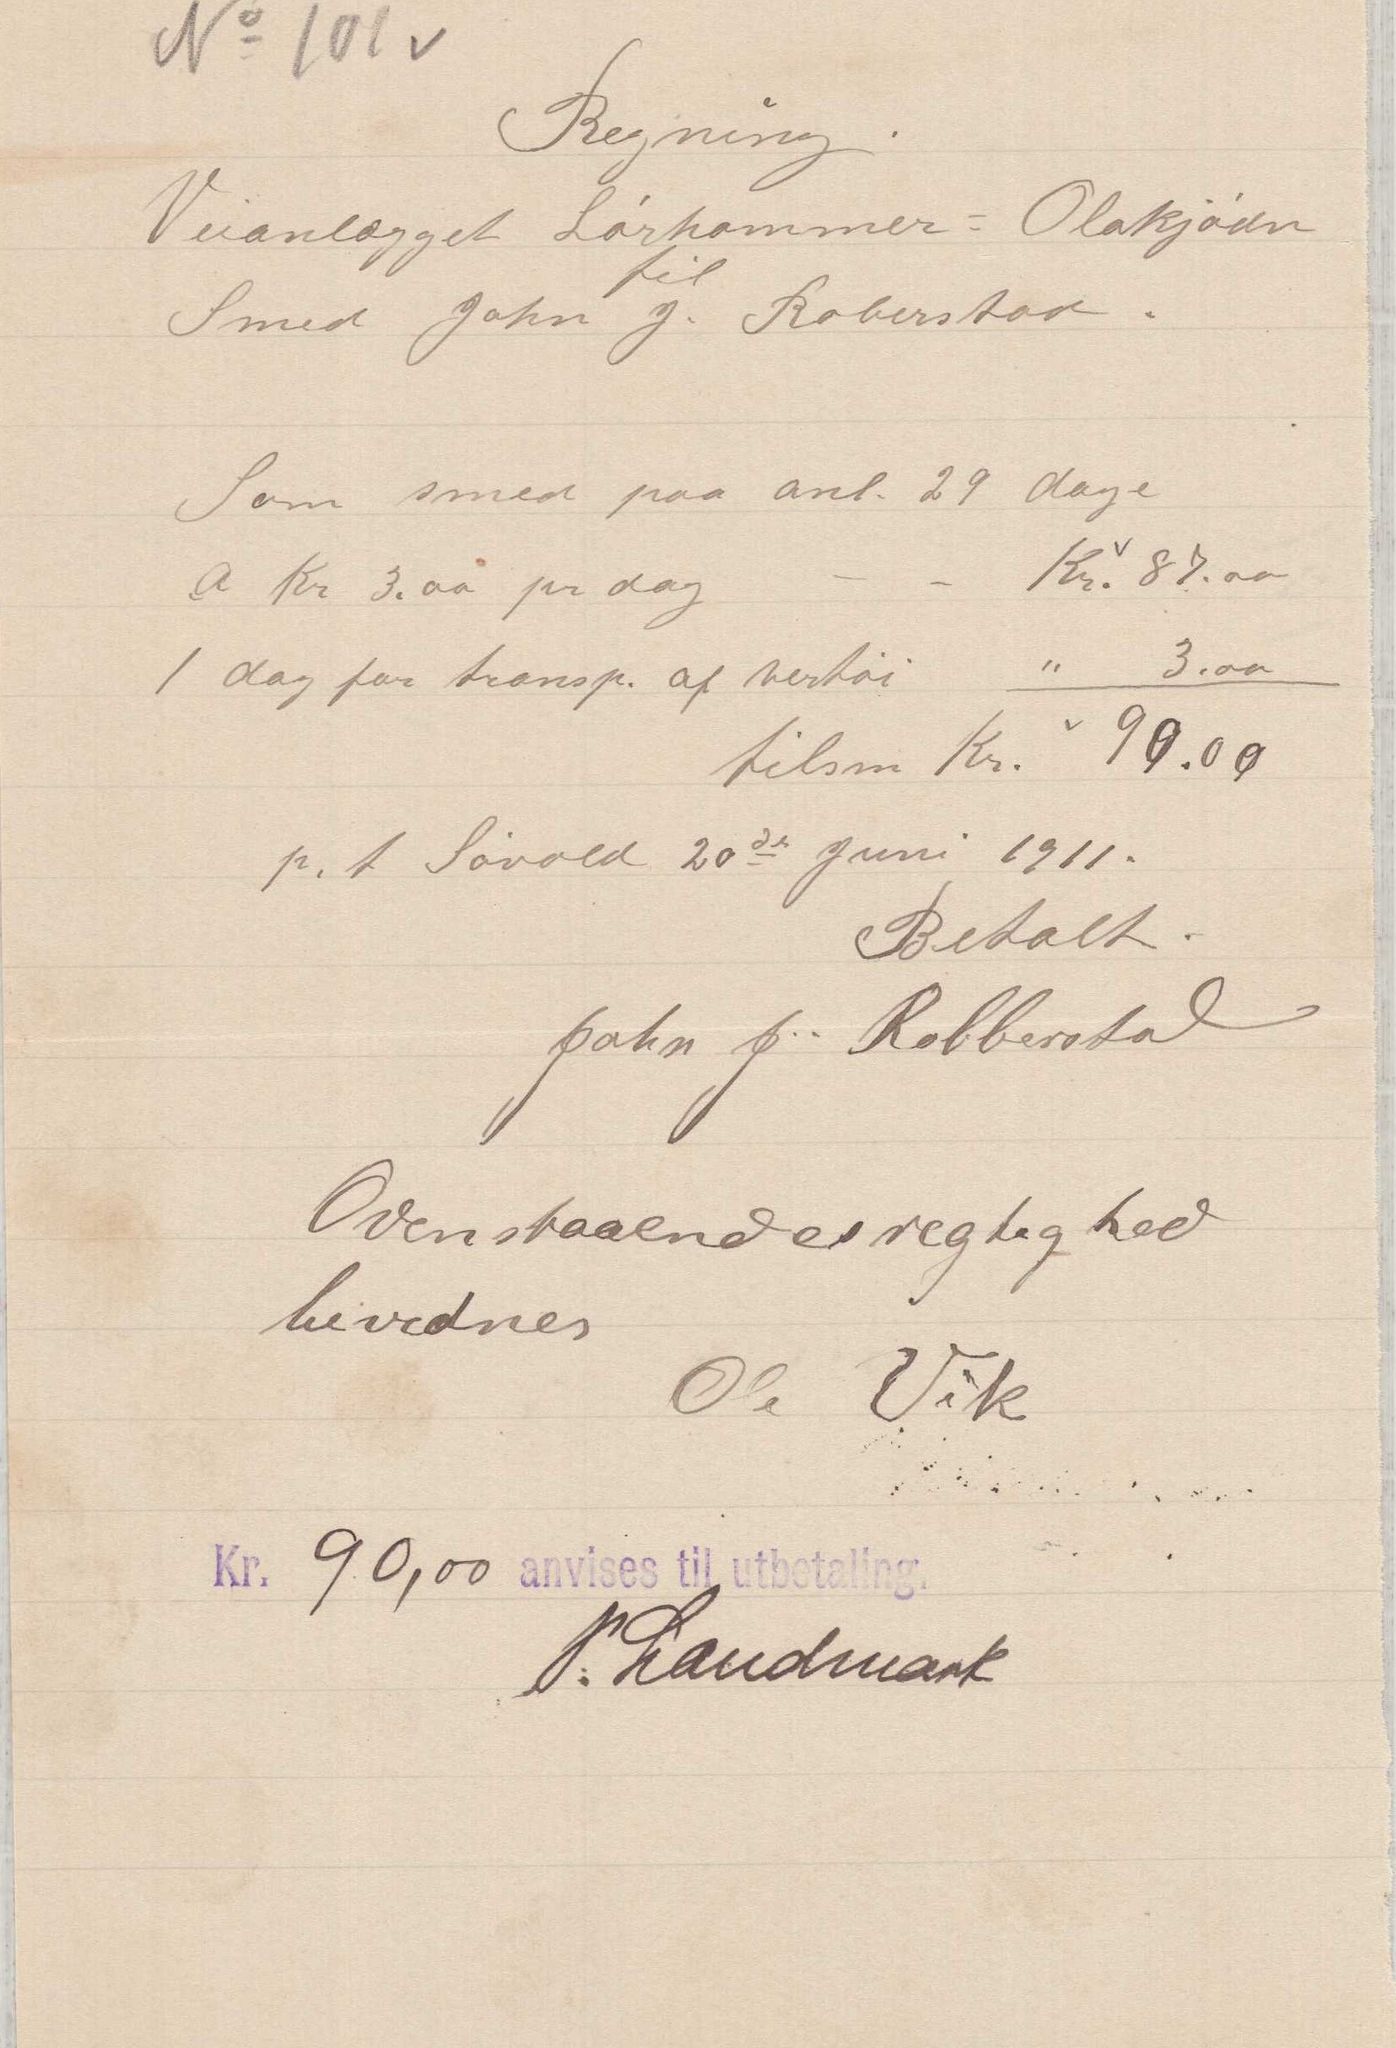 No 101 v
Regning.
Veianlægget Lörhammer = Olakjödn
til
Smed John J. Roberstad.
Som smed paa anl. 29 dage
a Kr 3.00 pr dag - - Kr. 87.00
1 dag for transp. af vertöi " 3.00
tilsm Kr. 90.00
p. t Sövold 20de Juni 1911.
Betalt.
John J. Robberstad
Ovenstaaendes regtighed
bevidnes
Ole Vik
Kr. 90,00 anvises til utbetaling.
P. Landmark